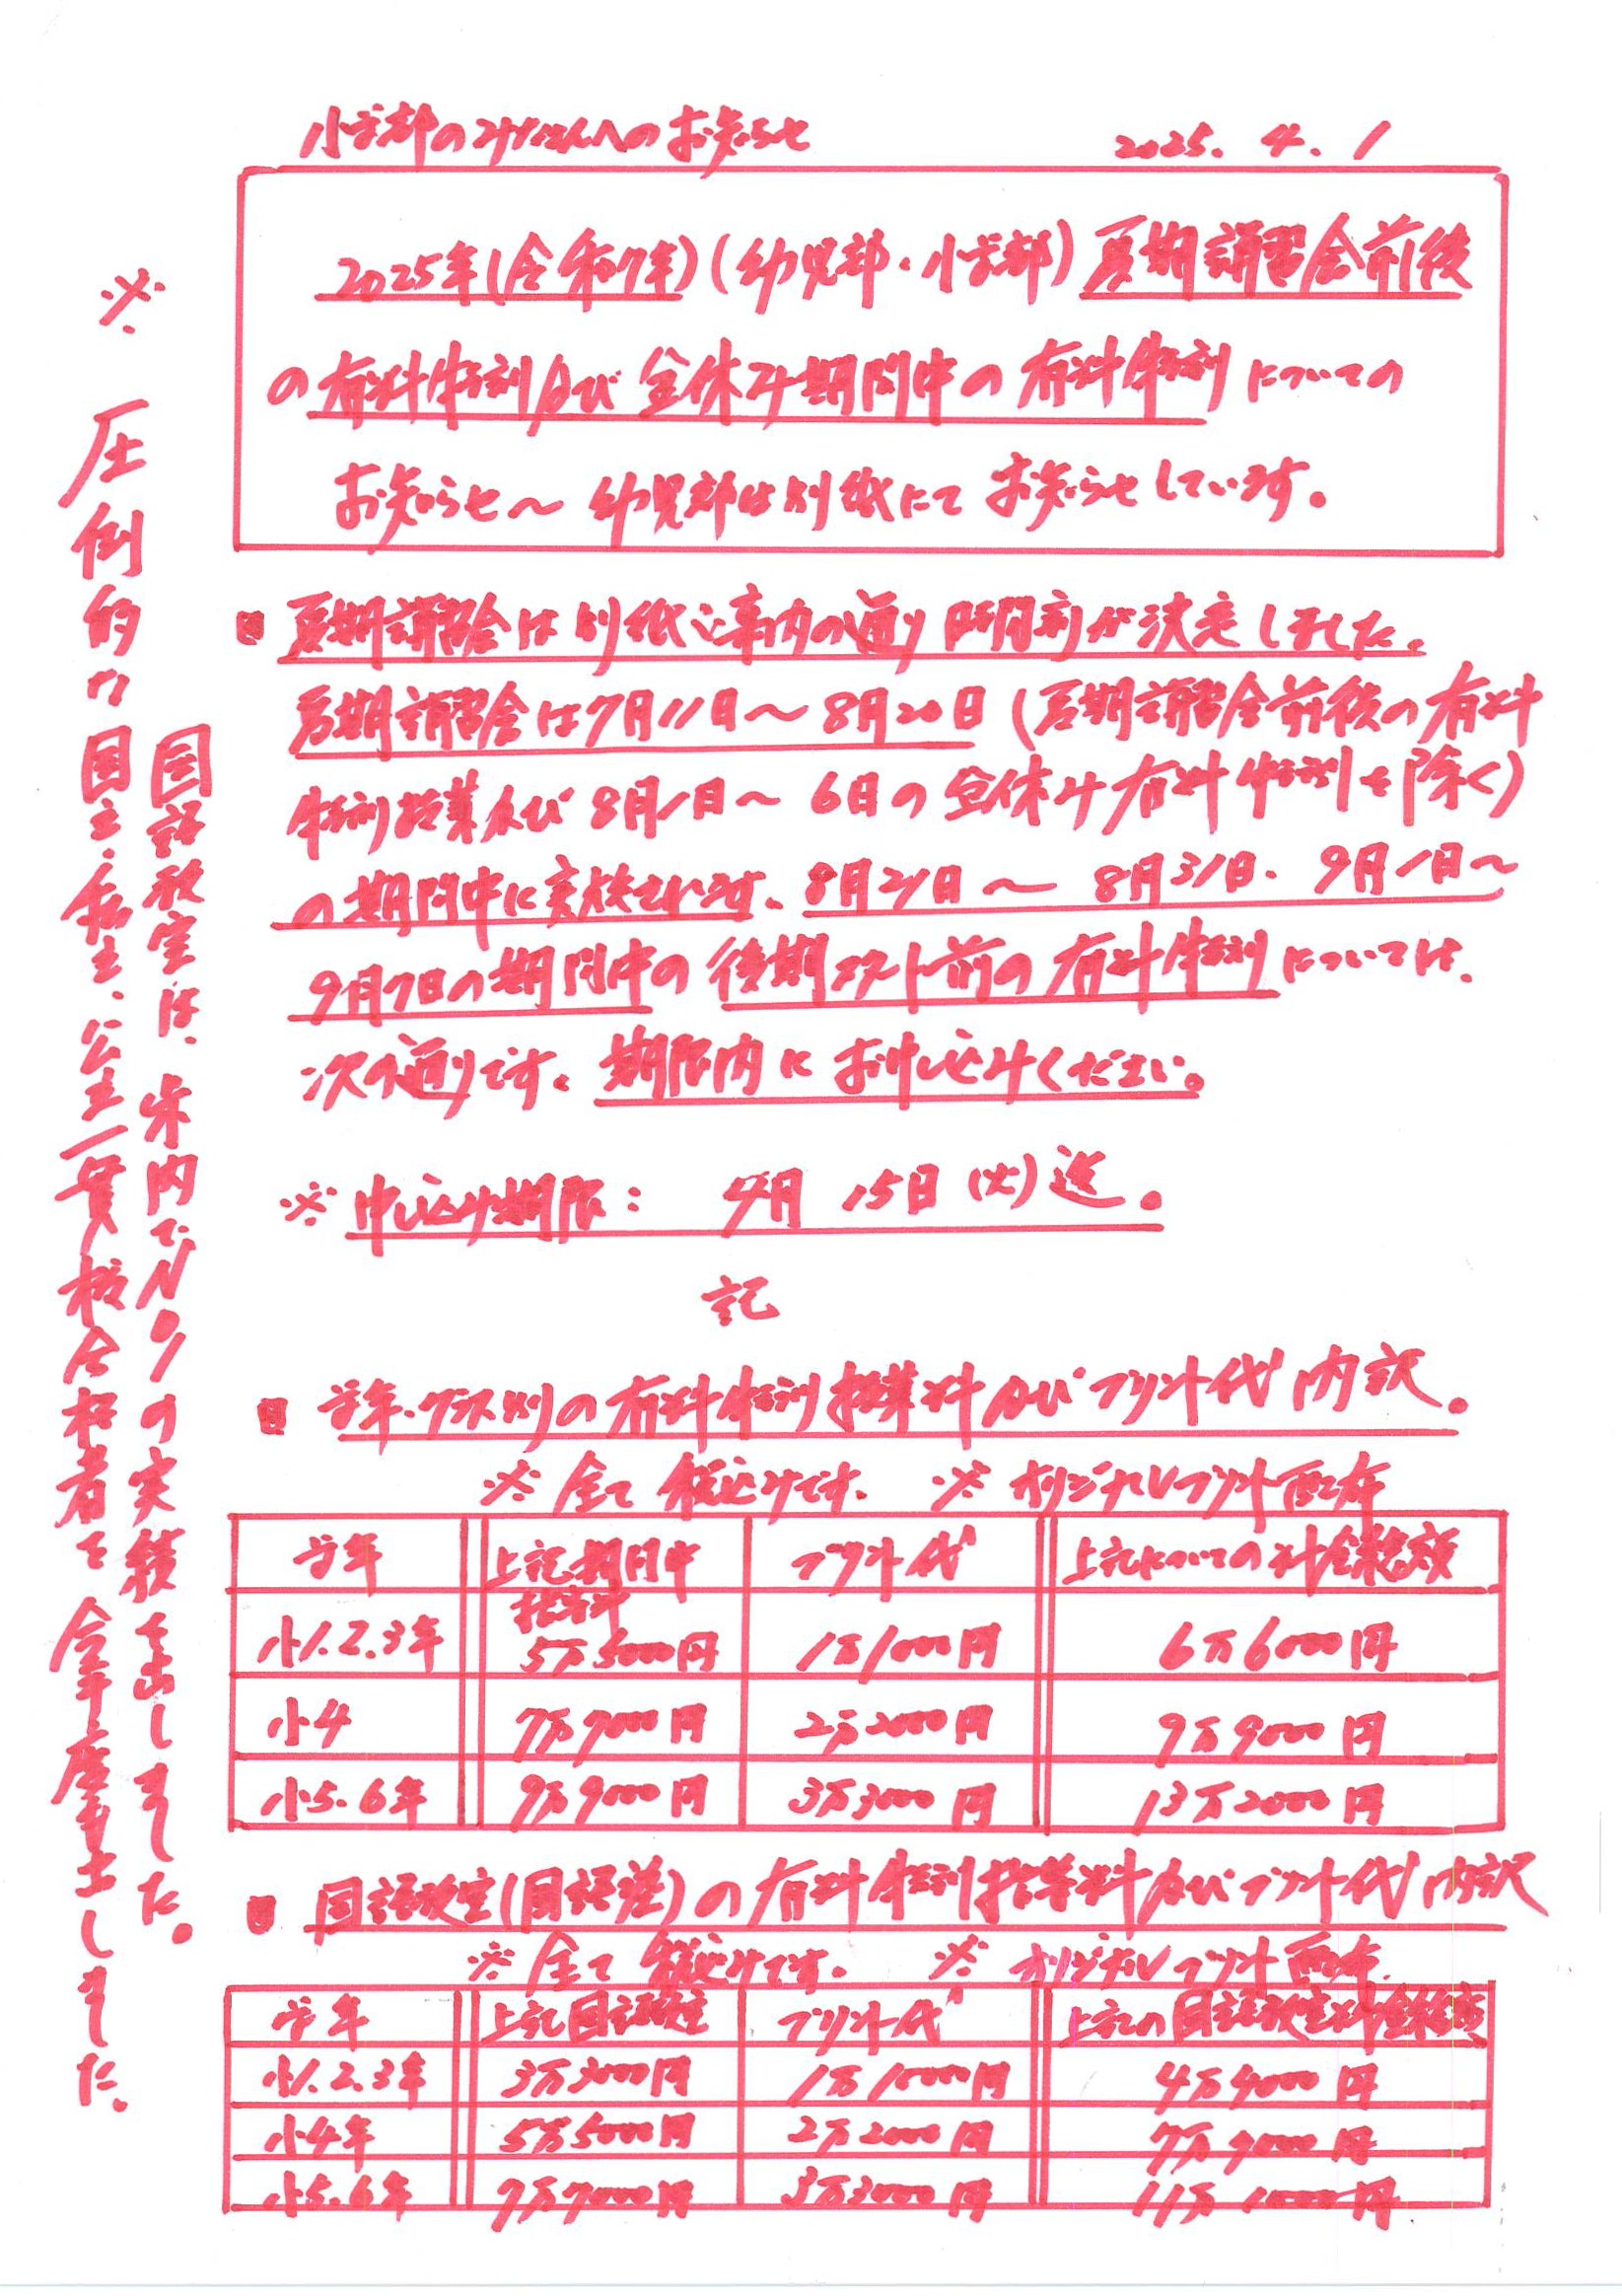 小学部のみなさんへのお知らせ 2025.4.1
2025年(令和7年)(幼児部・小学部)夏期講習会前後
の有料特別及び全休み期間中の有料特別についての
お知らせ～幼児部は別紙にてお知らせしています。
夏期講習会は別紙ご案内の通り時間割が決定しました。
夏期講習会は7月11日～8月20日(夏期講習会前後の有料
特別授業及び8月1日～6日の全休み有料特別を除く)
の期間中に実施されます。8月21日～8月31日、9月1日～
9月7日の期間中の後期テスト前の有料特別については、
次の通りです。期限内にお申し込みください。
※申し込み期限: 4月15日(火)迄。
記
学年・クラス別の有料特別授業料及びプリント代内訳。
※全て税込みです。 ※オリジナルプリント配布
学年 上記期日中授業料 プリント代 上記についての料金総額
小1.2.3年 5万5000円 1万1000円 6万6000円
小4 7万7000円 2万2000円 9万9000円
小5.6年 9万9000円 3万3000円 13万2000円
国語教室(国語道)の有料特別授業料及びプリント代内訳
※全て税込みです。 ※オリジナルプリント配布
学年 上記国語教室 プリント代 上記の国語教室料金総額
小1.2.3年 3万3000円 1万1000円 4万4000円
小4年 5万5000円 2万2000円 7万7000円
小5.6年 7万7000円 3万3000円 11万1000円
国語教室は、米内でNO1の実績を出しました。
※圧倒的な国立、私立、公立一貫校合格者を輩出しました。